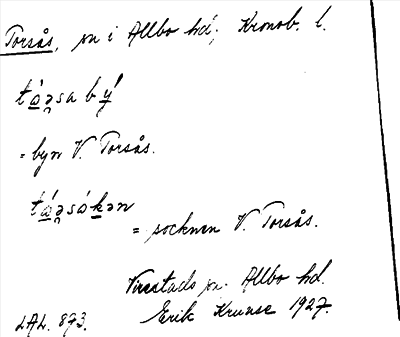 Torsås, sn i Allbo hd; Kronob. l.
tá̱ə̯sa bý̱
= byn V. Torsås.
tá̱ə̯sókən
= socknen V. Torsås.
Virestads sn. Allbo hd.
LAL. 873. Erik Kruuse 1927.